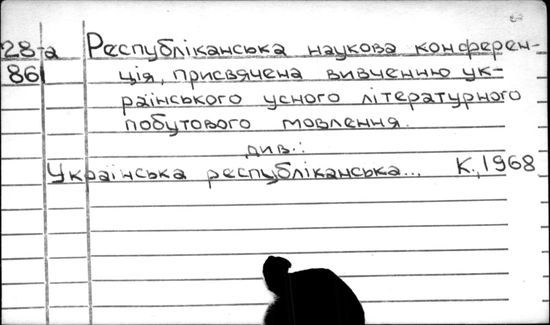 28-а Республіканська наукова конферен-
86 ція, присвячена вивченню ук-
раїнського усного літературного
побутового мовлення.
див.:
Українська республіканська... К., 1968